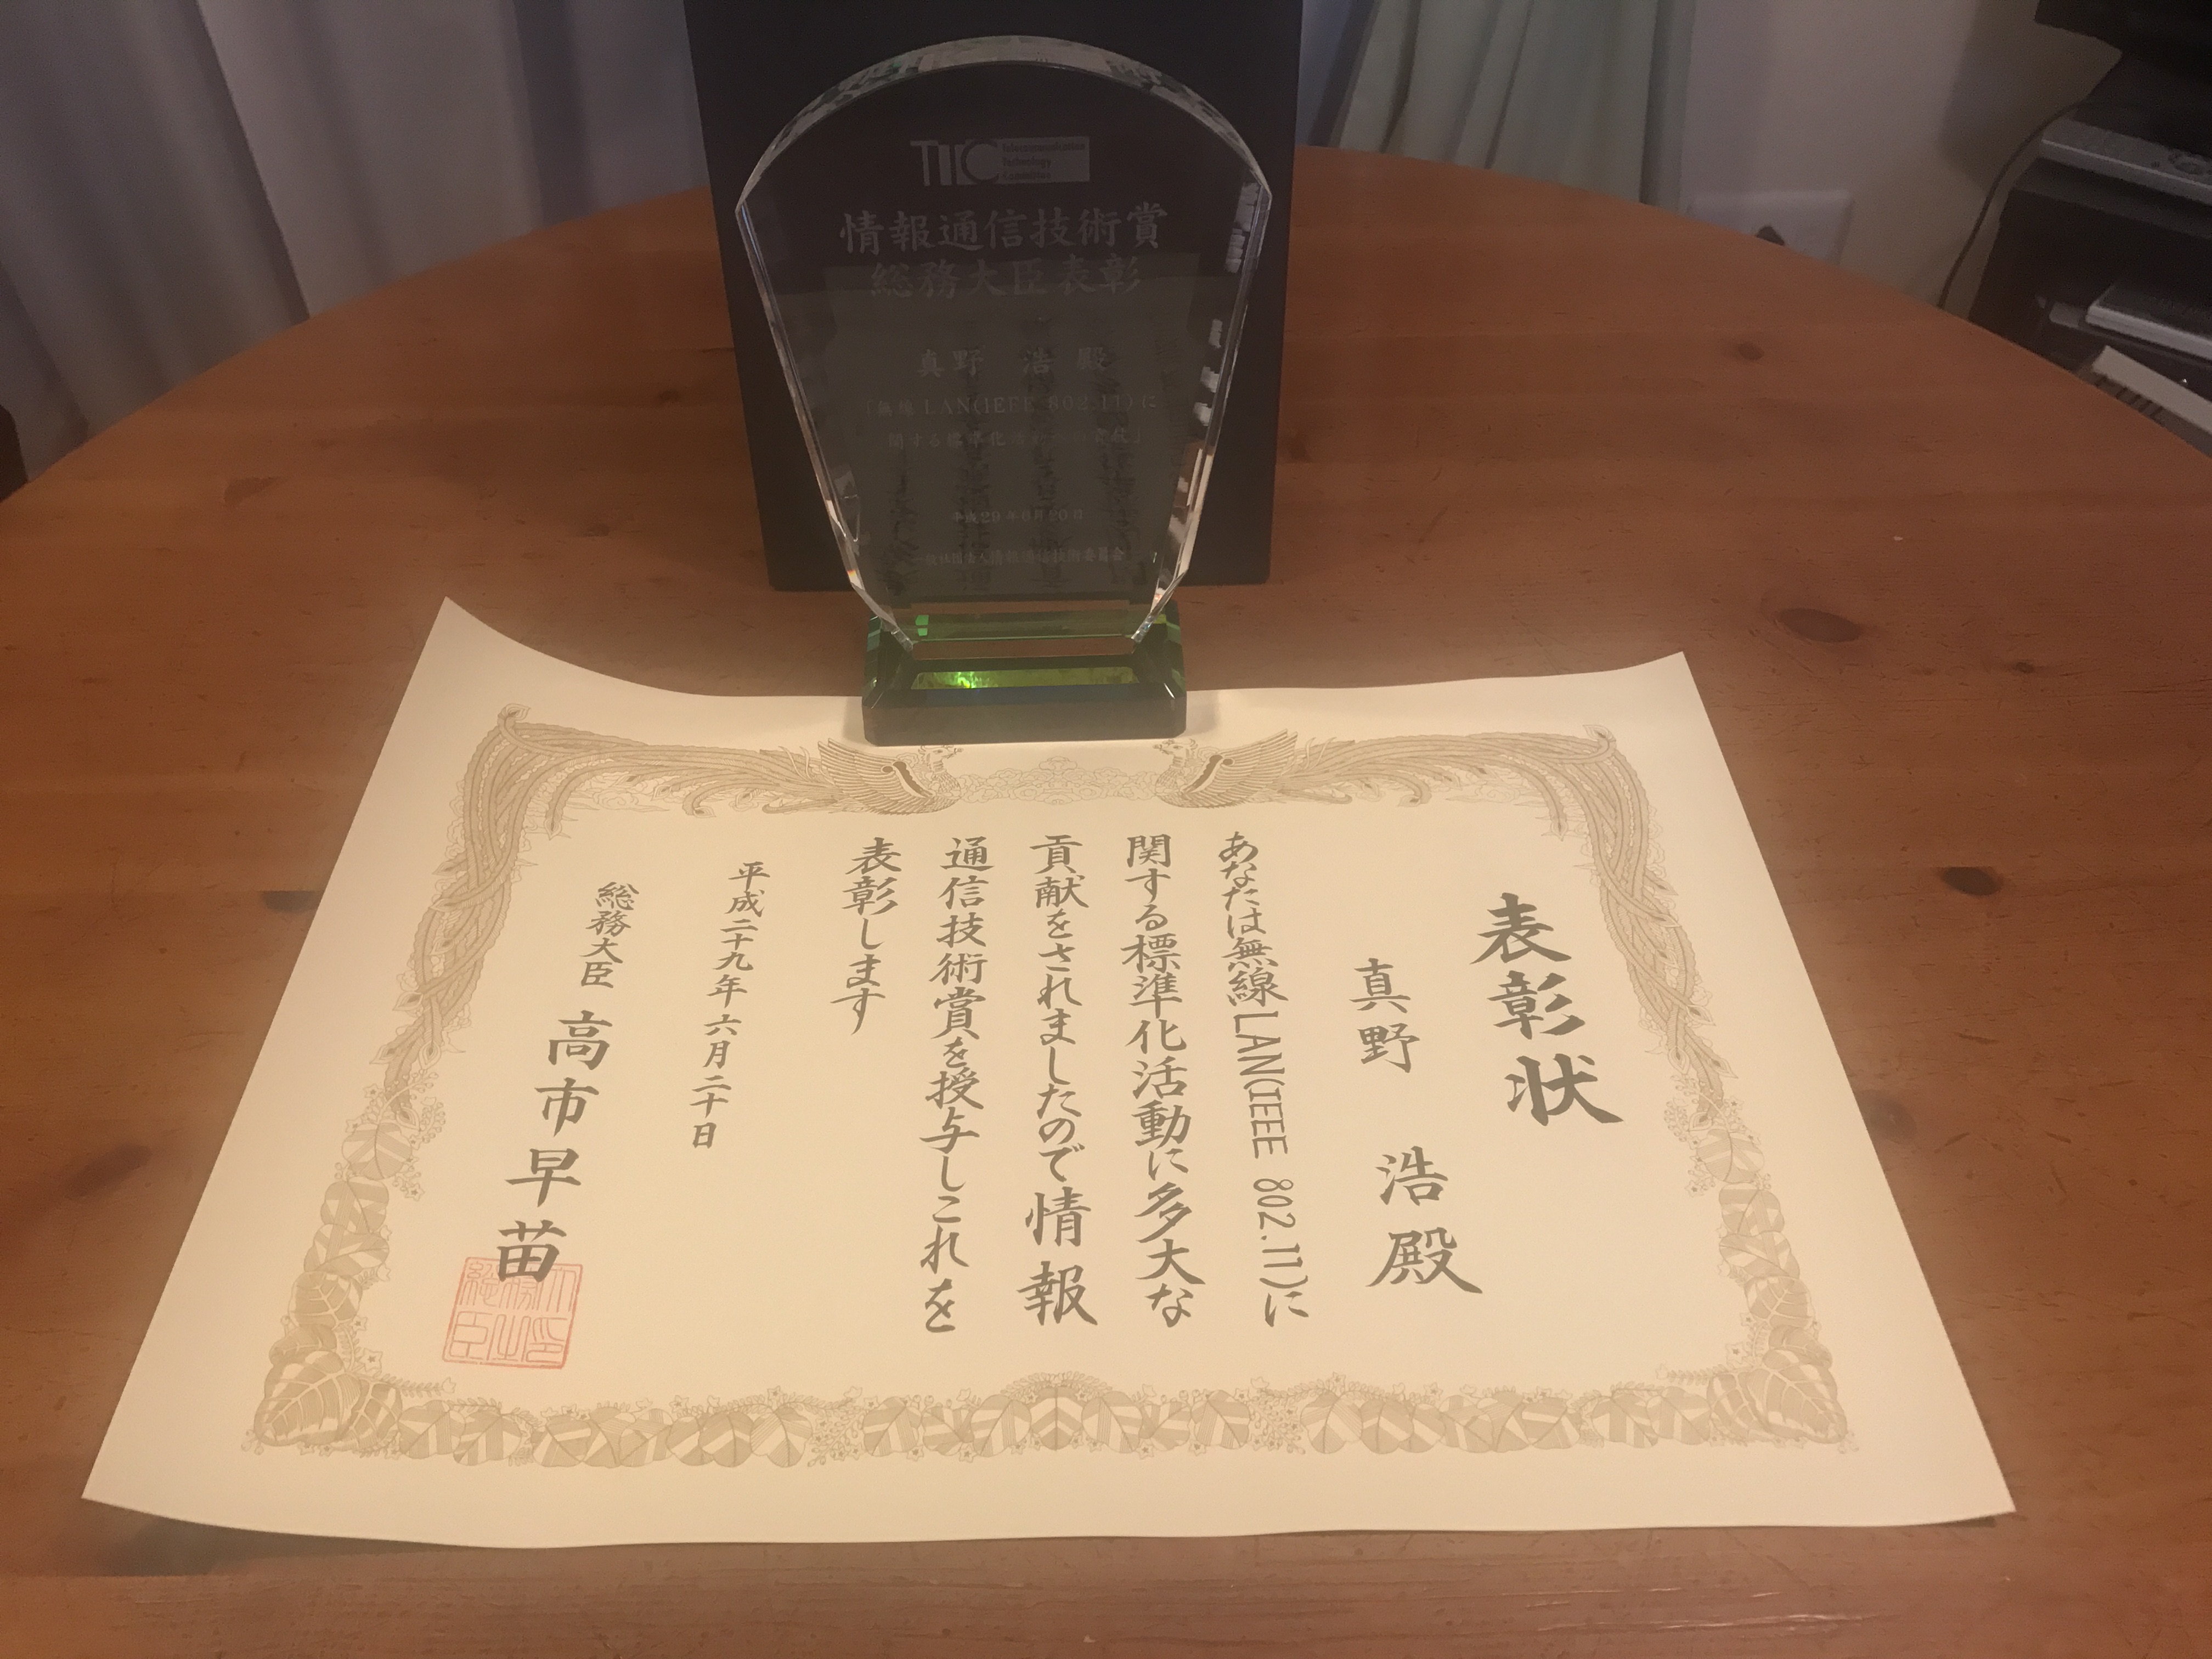 TTC Telecommunication
Technology
Committee
情報通信技術賞
総務大臣表彰
真野 浩 殿
「無線LAN(IEEE 802.11)に
関する標準化活動への貢献」
平成29年6月20日
一般社団法人情報通信技術委員会
表彰状
真野 浩殿
あなたは無線LAN(IEEE 802.11)に
関する標準化活動に多大な
貢献をされましたので情報
通信技術賞を授与しこれを
表彰します
平成二十九年六月二十日
総務大臣 高市早苗
総務大臣之印